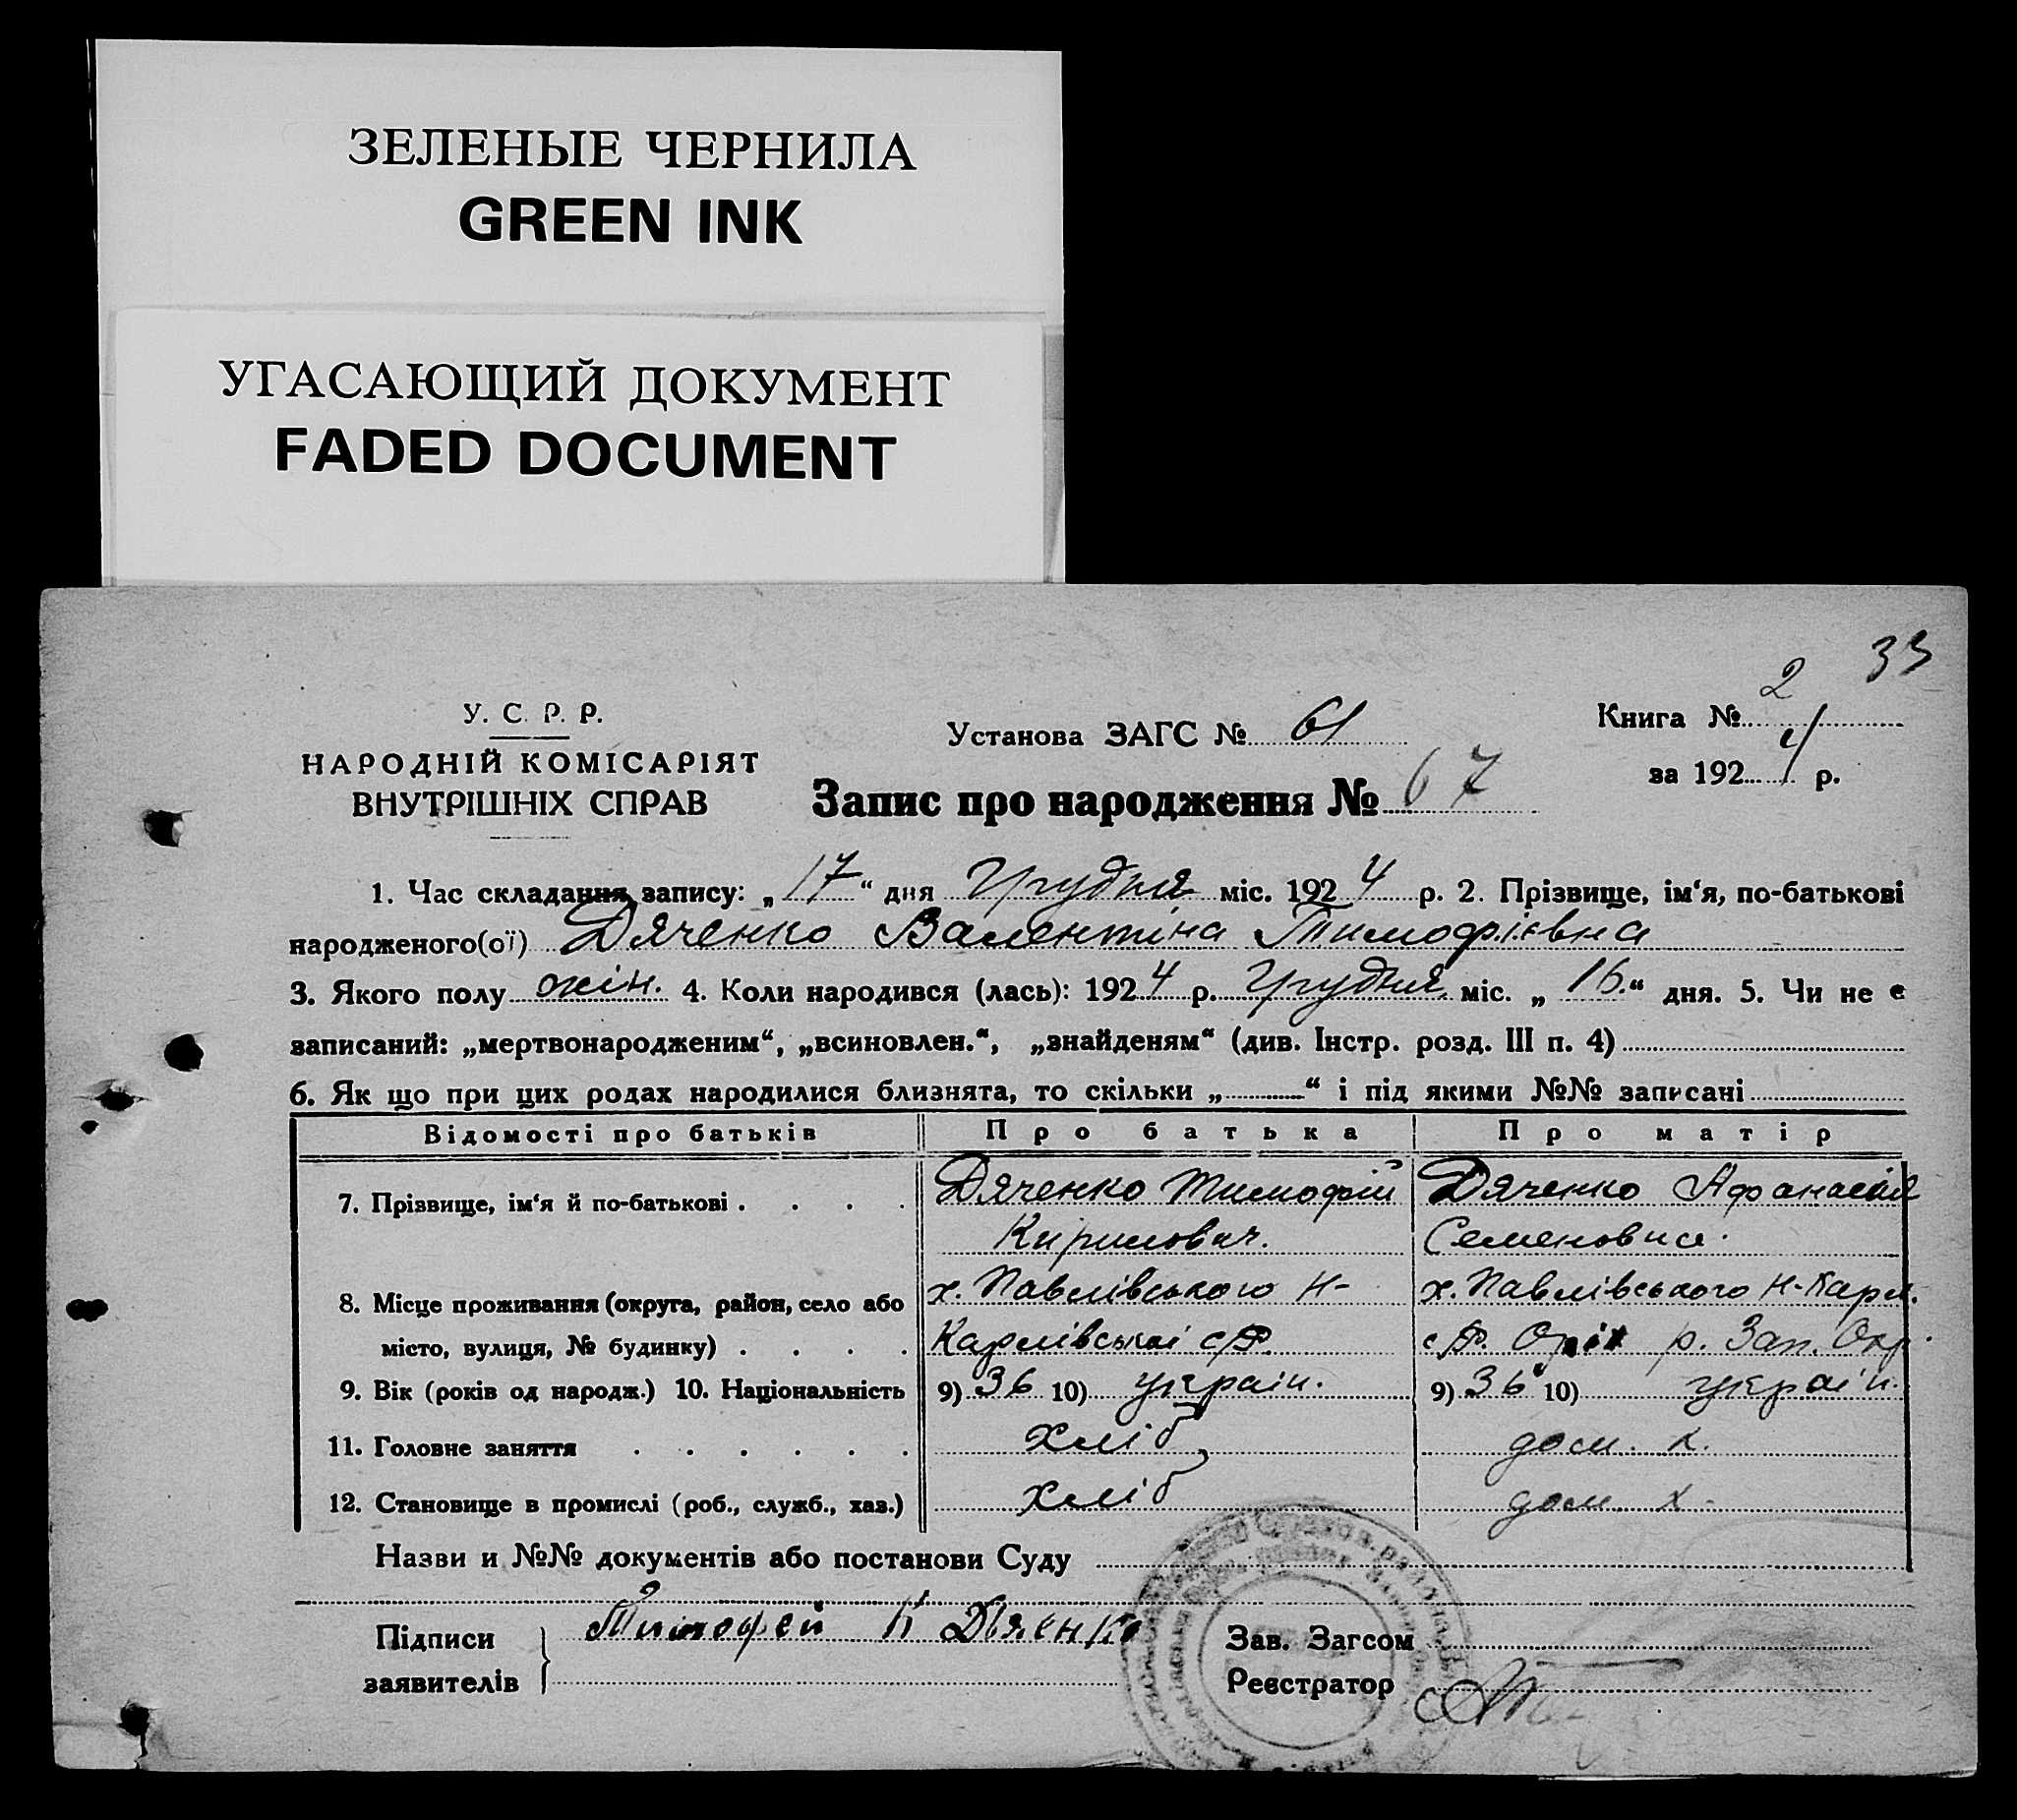 ЗЕЛЕНЫЕ ЧЕРНИЛА
GREEN INK
УГАСАЮЩИЙ ДОКУМЕНТ
FADED DOCUMENT
33
У. С. Р. Р.
НАРОДНІЙ КОМІСАРІЯТ
ВНУТРІШНІХ СПРАВ
Установа ЗАГС № 61
Книга № 2
за 1924 р.
Запис про народження № 67
1. Час складання запису: „17“ дня Грудня міс. 1924 р. 2. Прізвище, ім‘я, по-батькові
народженого(ої) Дяченко Валентіна Тимофієвна
3. Якого полу жін. 4. Коли народився (лась): 1924 р. Грудня міс. „16.“ дня. 5. Чи не є
записаний: „мертвонародженим“, „всиновлен.“, „знайденям“ (див. Інстр. розд. III п. 4)
6. Як що при цих родах народилися близнята, то скільки „ “ і під якими №№ записані
Відомості про батьків Про батька Про матір
7. Прізвище, ім‘я й по-батькові . . . . Дяченко Тимофій Дяченко Афанасія
Кирилович. Семеновна.
8. Місце проживання (округа, район, село або х. Павлівського Н- х. Павлівського Н-Карл.
місто, вулиця, № будинку) . . . . Карлівської с/р. с/р. Оріх р. Зап. Окр.
9. Вік (років од народж.) 10. Національність 9) 36 10) україн. 9) 36 10) україн.
11. Головне заняття . . . . . . хліб дом. х.
12. Становище в промислі (роб., служб., хаз.) хліб дом. х.
Назви и №№ документів або постанови Суду
Підписи Тимофей К Дьяченко Зав. Загсом
заявителів Реєстратор